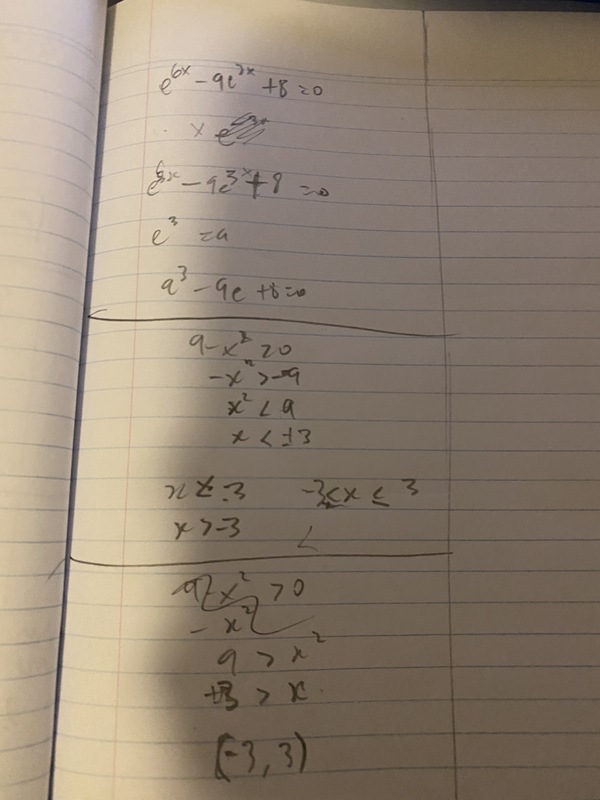 e^6x - 9e^3x + 8 = 0
x e
e^6x - 9e^3x + 8 = 0
e^3 = a
a^3 - 9e + 8 = 0
9 - x^2 ≥ 0
-x^2 > -9
x^2 < 9
x < ±3
-3 ≤ x ≤ 3
x > -3 <
9 - x^2 > 0
- x^2
9 > x^2
±3 > x
(-3, 3)